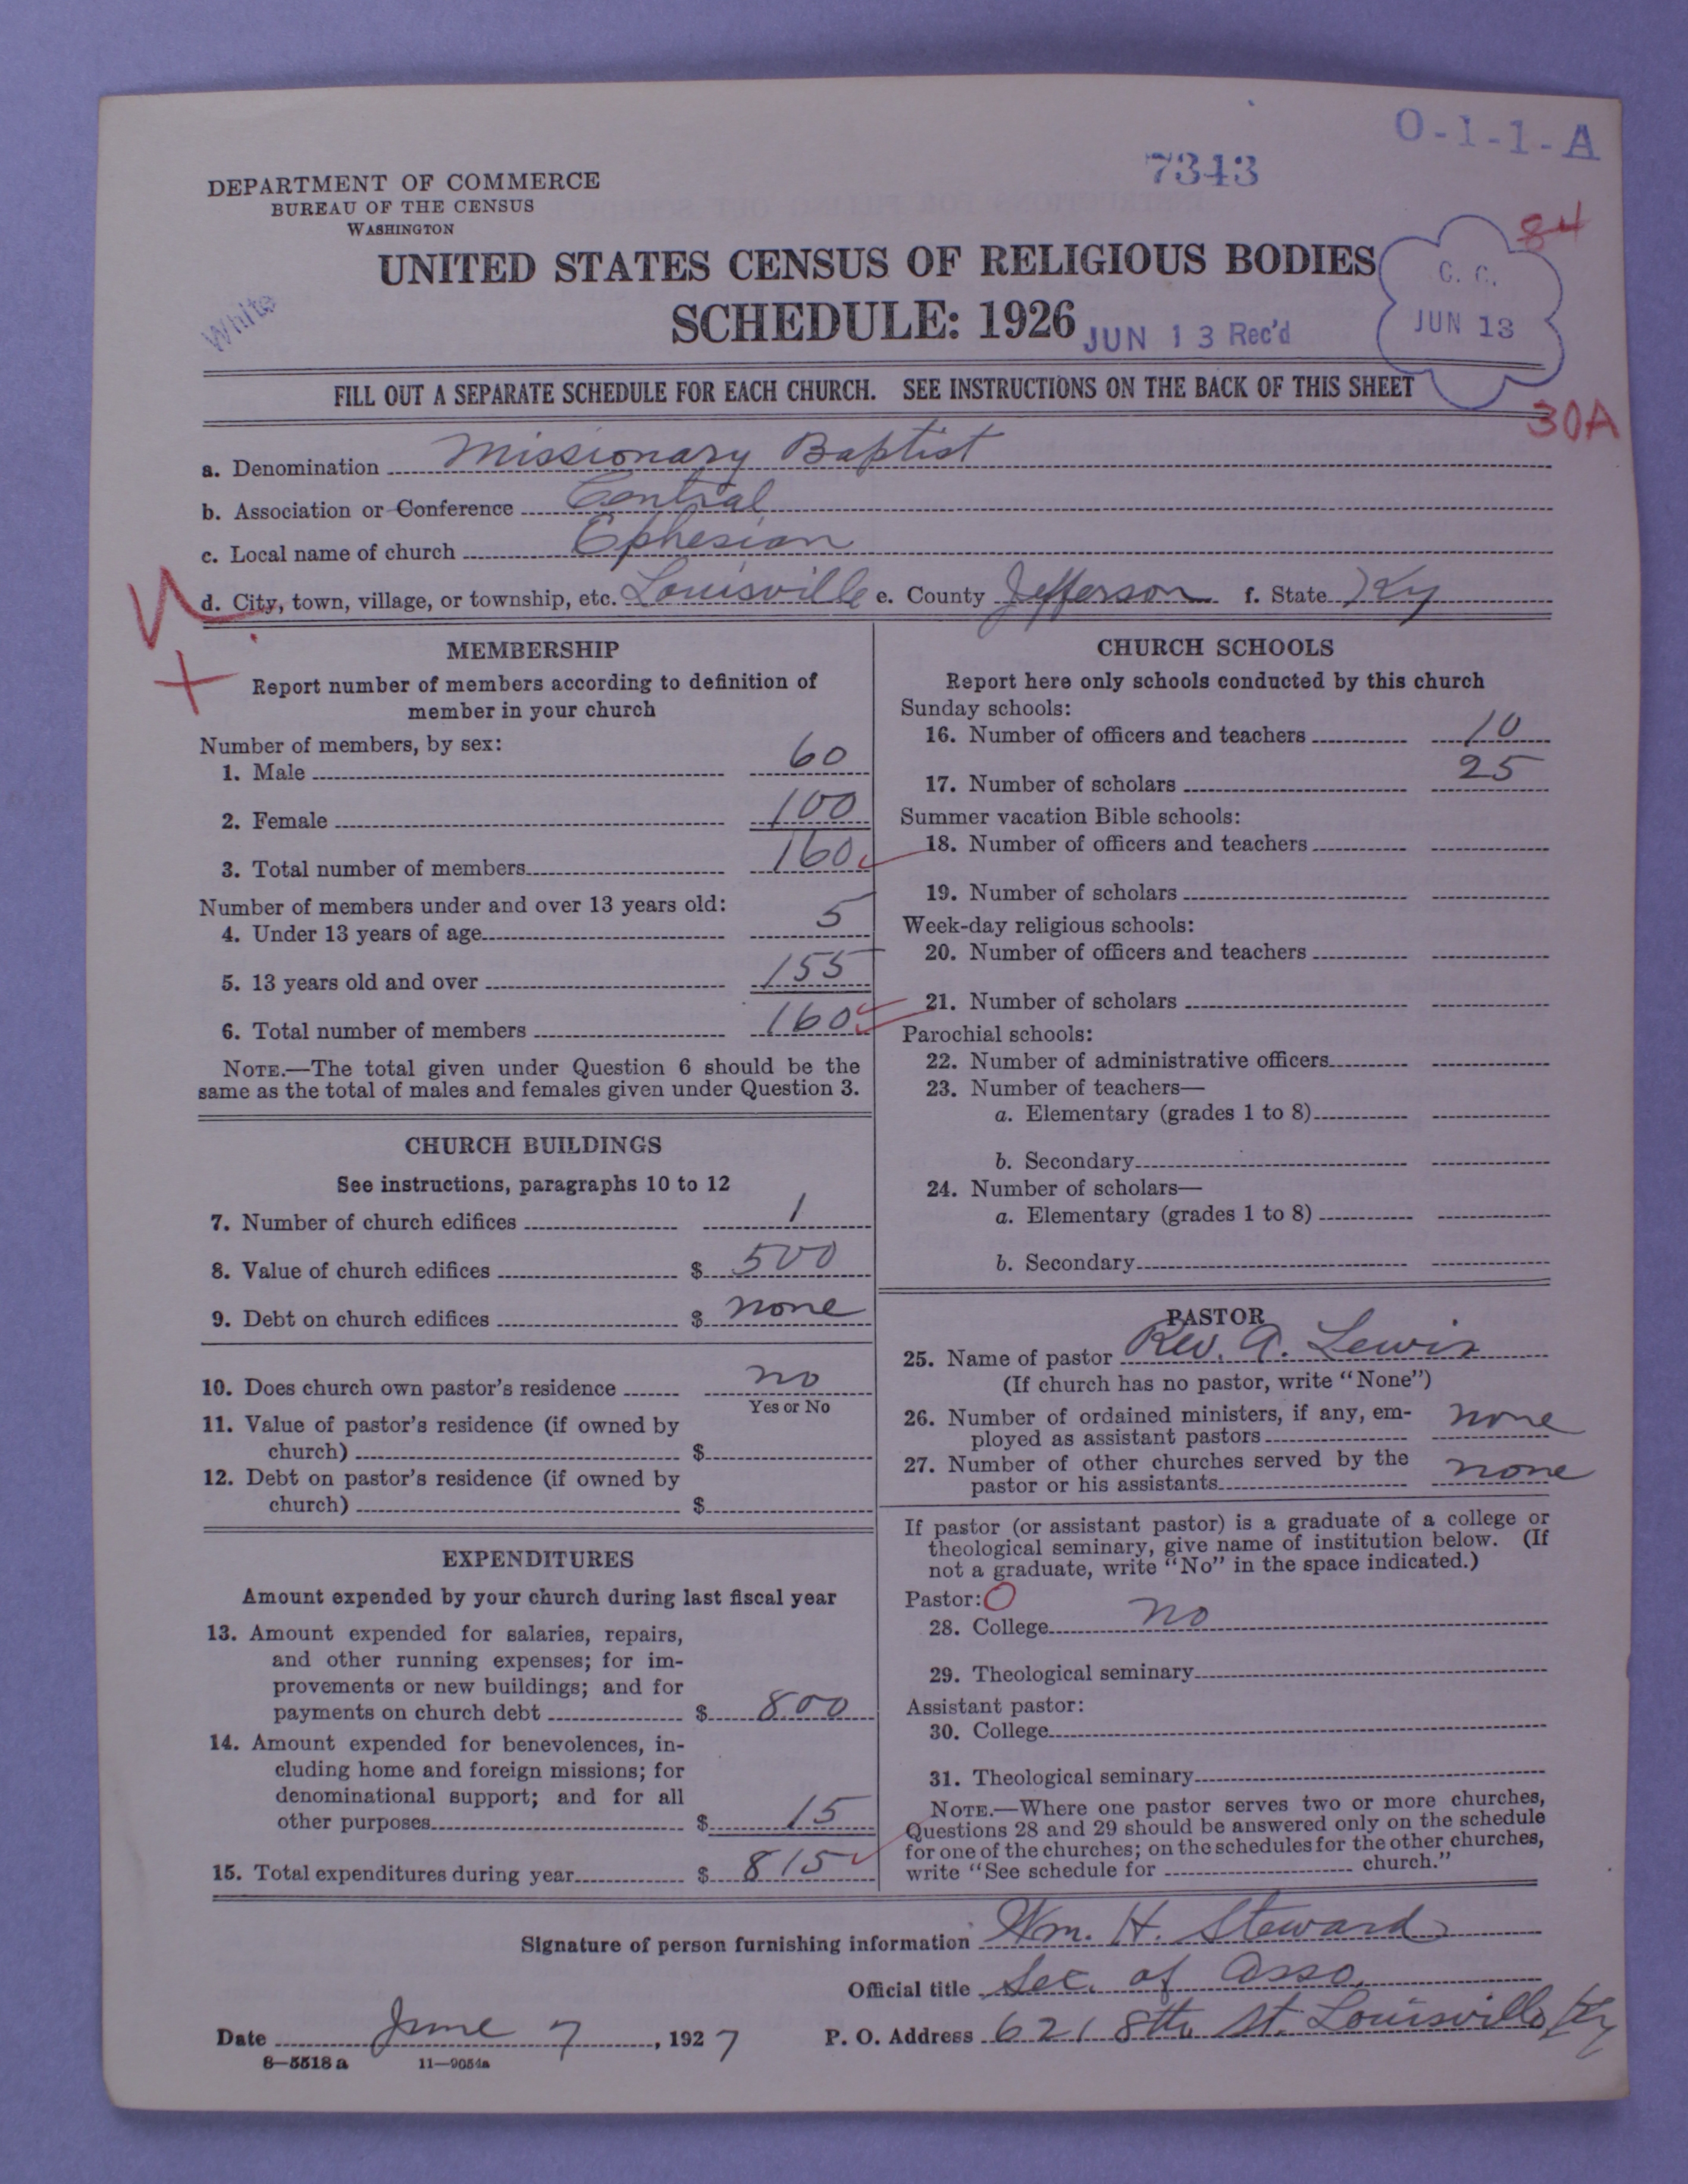 O-1-1-A
7343
DEPARTMENT OF COMMERCE
BUREAU OF THE CENSUS
WASHINGTON
84
UNITED STATES CENSUS OF RELIGIOUS BODIES
C. C.
White
SCHEDULE: 1926
JUN 13 Rec'd
JUN 13
FILL OUT A SEPARATE SCHEDULE FOR EACH CHURCH. SEE INSTRUCTIONS ON THE BACK OF THIS SHEET
30A
a. Denomination Missionary Baptist
b. Association or Conference Central
c. Local name of church Ephesian
d. City, town, village, or township, etc. Louisville e. County Jefferson f. State Ky
MEMBERSHIP
Report number of members according to definition of
member in your church
Number of members, by sex:
1. Male 60
2. Female 100
3. Total number of members 160
Number of members under and over 13 years old:
4. Under 13 years of age 5
5. 13 years old and over 155
6. Total number of members 160
NOTE.—The total given under Question 6 should be the
same as the total of males and females given under Question 3.
CHURCH BUILDINGS
See instructions, paragraphs 10 to 12
7. Number of church edifices 1
8. Value of church edifices $ 500
9. Debt on church edifices $ none
10. Does church own pastor's residence no
Yes or No
11. Value of pastor's residence (if owned by
church) $
12. Debt on pastor's residence (if owned by
church) $
EXPENDITURES
Amount expended by your church during last fiscal year
13. Amount expended for salaries, repairs,
and other running expenses; for im-
provements or new buildings; and for
payments on church debt $ 8.00
14. Amount expended for benevolences, in-
cluding home and foreign missions; for
denominational support; and for all
other purposes $ 15
15. Total expenditures during year $ 815
CHURCH SCHOOLS
Report here only schools conducted by this church
Sunday schools:
16. Number of officers and teachers 10
17. Number of scholars 25
Summer vacation Bible schools:
18. Number of officers and teachers
19. Number of scholars
Week-day religious schools:
20. Number of officers and teachers
21. Number of scholars
Parochial schools:
22. Number of administrative officers
23. Number of teachers—
a. Elementary (grades 1 to 8)
b. Secondary
24. Number of scholars—
a. Elementary (grades 1 to 8)
b. Secondary
PASTOR
25. Name of pastor Rev. A. Lewis
(If church has no pastor, write "None")
26. Number of ordained ministers, if any, em-
ployed as assistant pastors none
27. Number of other churches served by the
pastor or his assistants none
If pastor (or assistant pastor) is a graduate of a college or
theological seminary, give name of institution below. (If
not a graduate, write "No" in the space indicated.)
Pastor: O
28. College no
29. Theological seminary
Assistant pastor:
30. College
31. Theological seminary
NOTE.—Where one pastor serves two or more churches,
Questions 28 and 29 should be answered only on the schedule
for one of the churches; on the schedules for the other churches,
write "See schedule for church."
Signature of person furnishing information Wm. H. Steward
Official title Sec. of Asso.
Date June 7, 1927 P. O. Address 621 8th St. Louisville Ky
8—5518 a 11—9054a